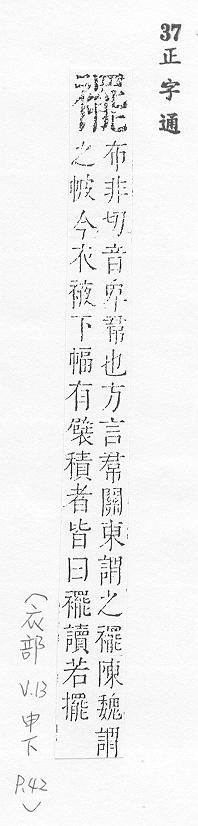 37
正字通
襬
布非切音卑帬也方言帬關東謂之襬陳魏謂
之帔今衣被下幅有襞積者皆曰襬讀若擺
(衣部 V.13 申下 P.42)